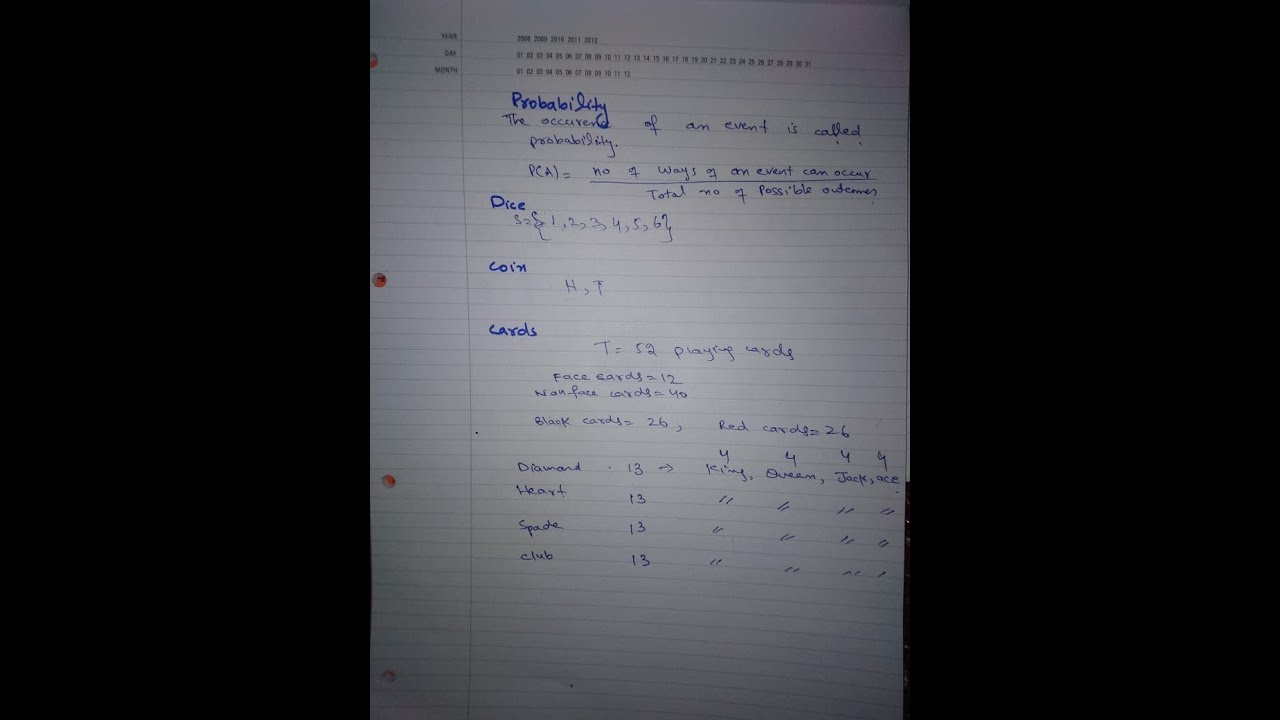 YEAR 2008 2009 2010 2011 2012
DAY 01 02 03 04 05 06 07 08 09 10 11 12 13 14 15 16 17 18 19 20 21 22 23 24 25 26 27 28 29 30 31
MONTH 01 02 03 04 05 06 07 08 09 10 11 12
Probability
The occurence of an event is called
probability.
P(A) = no of ways of an event can occur
Total no of Possible outcomes
Dice
S={1,2,3,4,5,6}
Coin
H,T
Cards
T= 52 playing cards
Face cards=12
Non face cards=40
Black cards= 26, Red cards=26
4 4 4 4
Diamond . 13 → King, Queen, Jack, ace
Heart 13 〃 〃 〃 〃
Spade 13 〃 〃 〃 〃
club 13 〃 〃 〃 〃